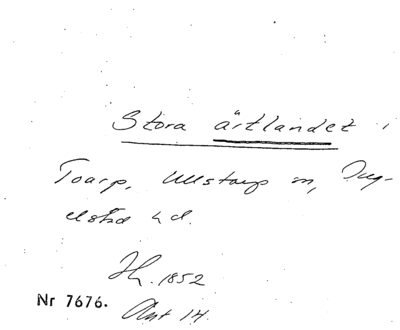 Stora ärtlandet i
Toarp, Ullstorp sn, Ing-
elstad hd.
Jh. 1852
Nr 7676. Ant 14.